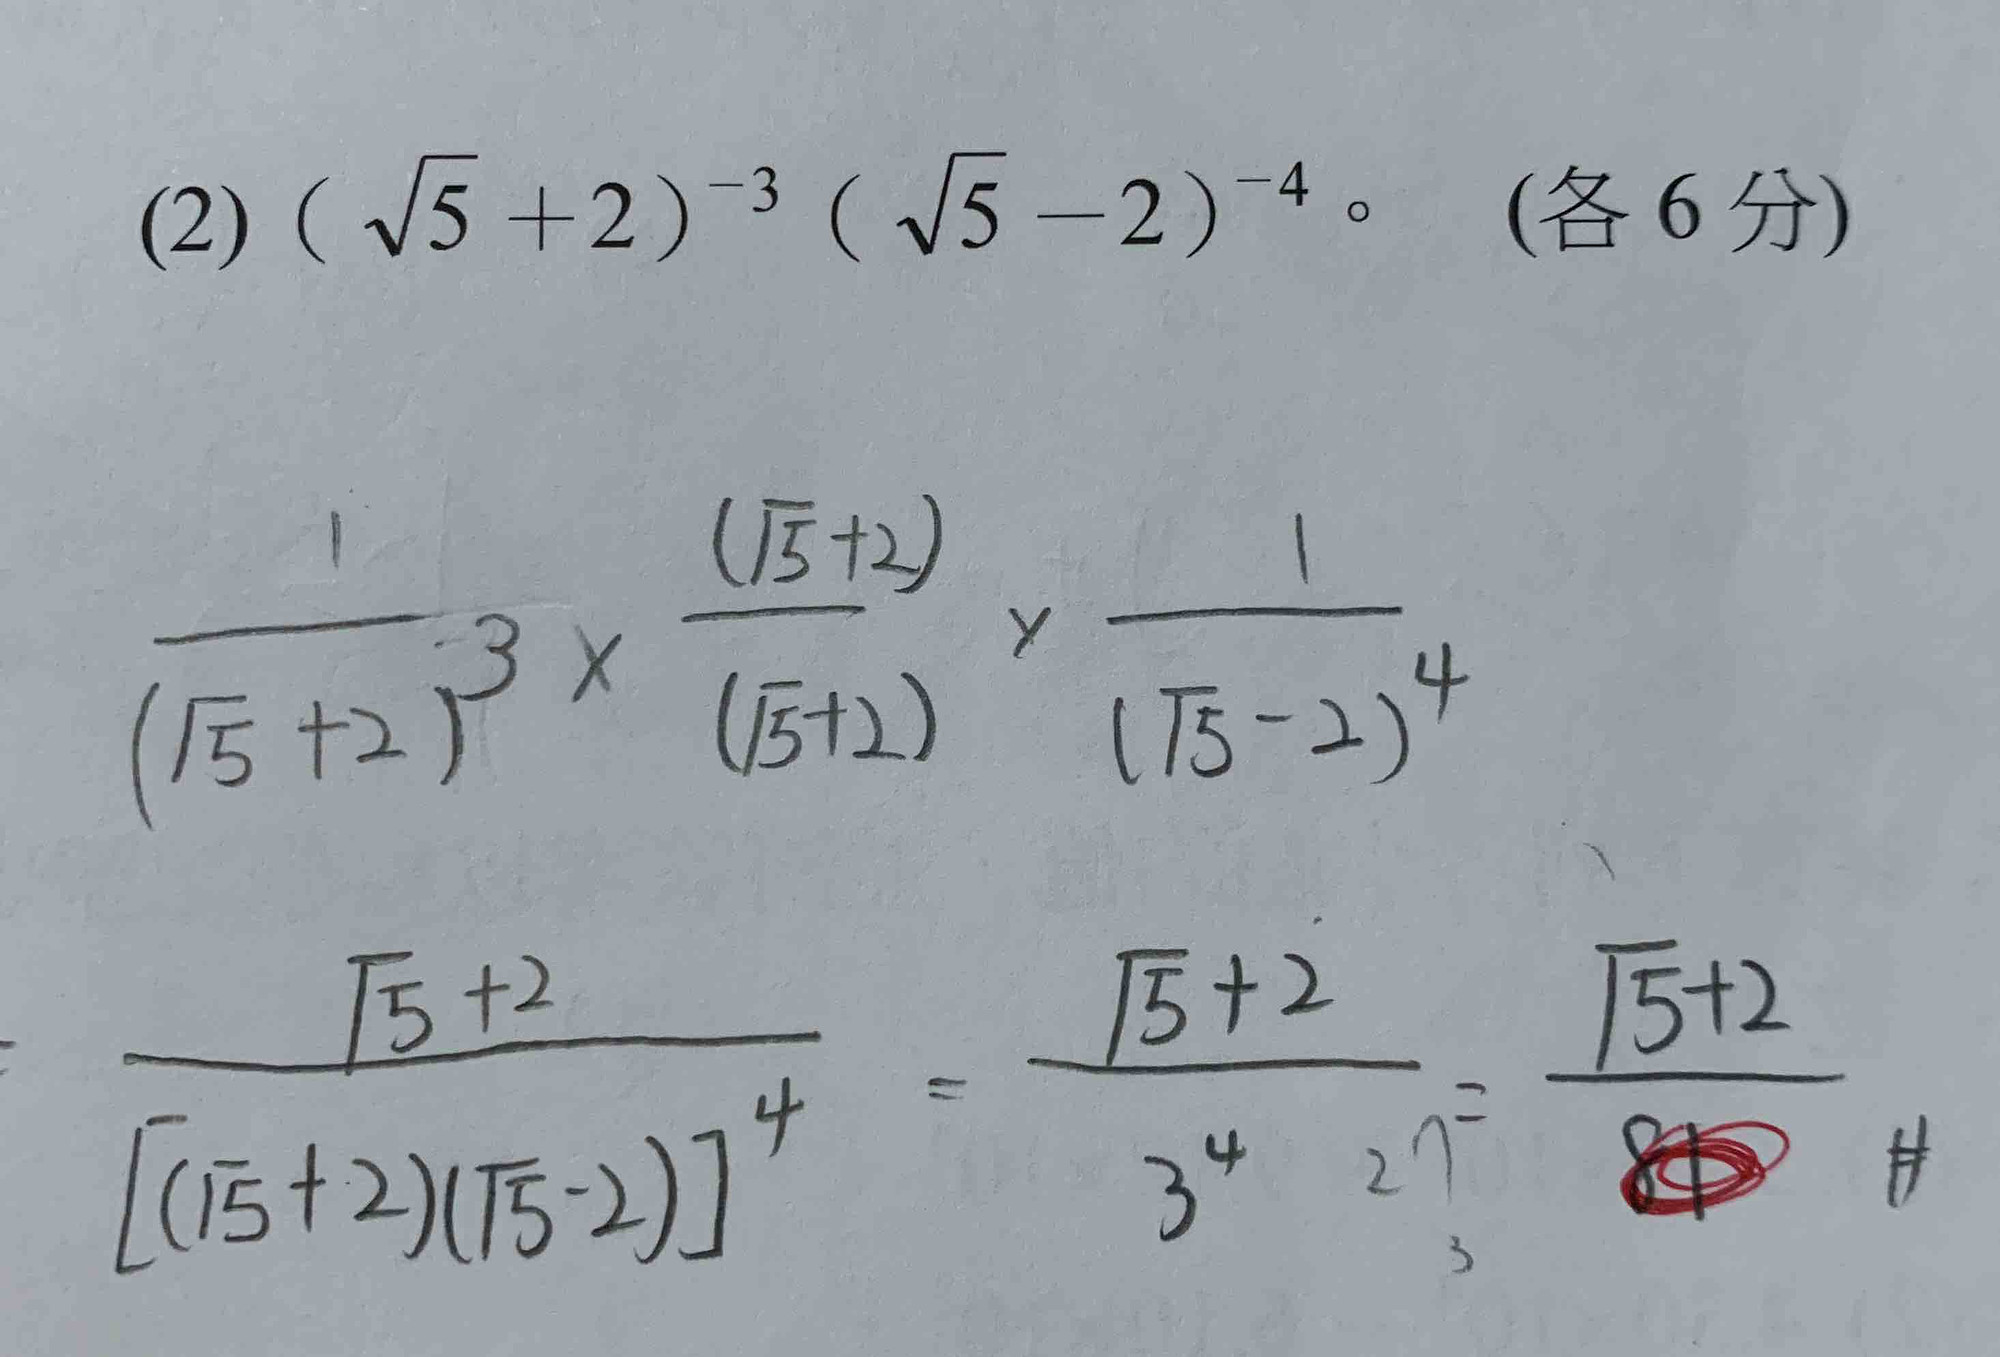 (2) (√5+2)⁻³ (√5−2)⁻⁴。 (各 6 分)
1/(√5+2)³ × (√5+2)/(√5+2) × 1/(√5-2)⁴
= √5+2/[(√5+2)(√5-2)]⁴ = √5+2/3⁴ = √5+2/81 #
27
3